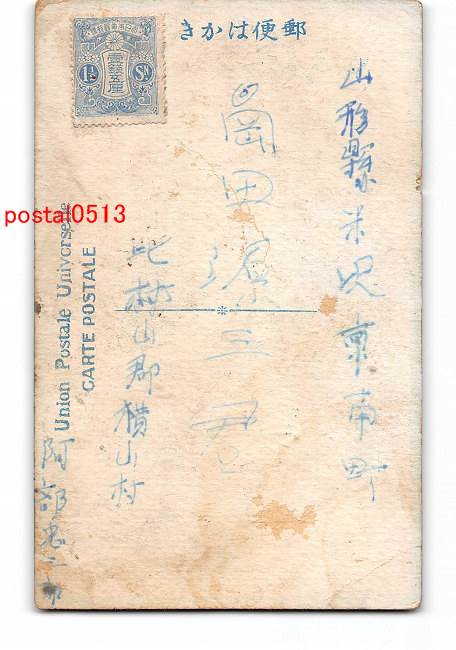 郵便はかき
山形縣米沢東南町
高田源三君
北村山郡横山村
阿部忠三郎
Union Postale Universelle
CARTE POSTALE
大日本帝國郵便
壹錢五厘
1½ Sn
postal0513